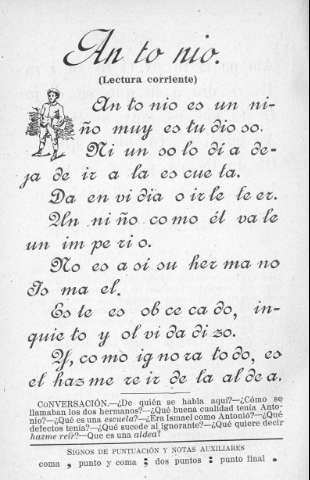 An to nio.
(Lectura corriente)
An to nio es un ni-
ño muy es tu dio so.
Ni un so lo dí a de-
ja de ir a la es cue la.
Da en vi dia o ir le le er.
Un ni ño co mo él va le
un im pe ri o.
No es a sí su her ma no
Is ma el.
Es te es ob ce ca do, in-
quie to y ol vi da di zo.
Y, co mo ig no ra to do, es
el haz me re ir de la al de a.
CONVERSACIÓN.—¿De quién se habla aquí?—¿Cómo se
llamaban los dos hermanos?—¿Qué buena cualidad tenía Anto-
nio?—¿Qué es una escuela?—¿Era Ismael como Antonio?—¿Qué
defectos tenía?—¿Qué sucede al ignorante?—¿Qué quiere decir
hazme reír?—Que es una aldea?
SIGNOS DE PUNTUACIÓN Y NOTAS AUXILIARES
coma , punto y coma ; dos puntos : punto final .